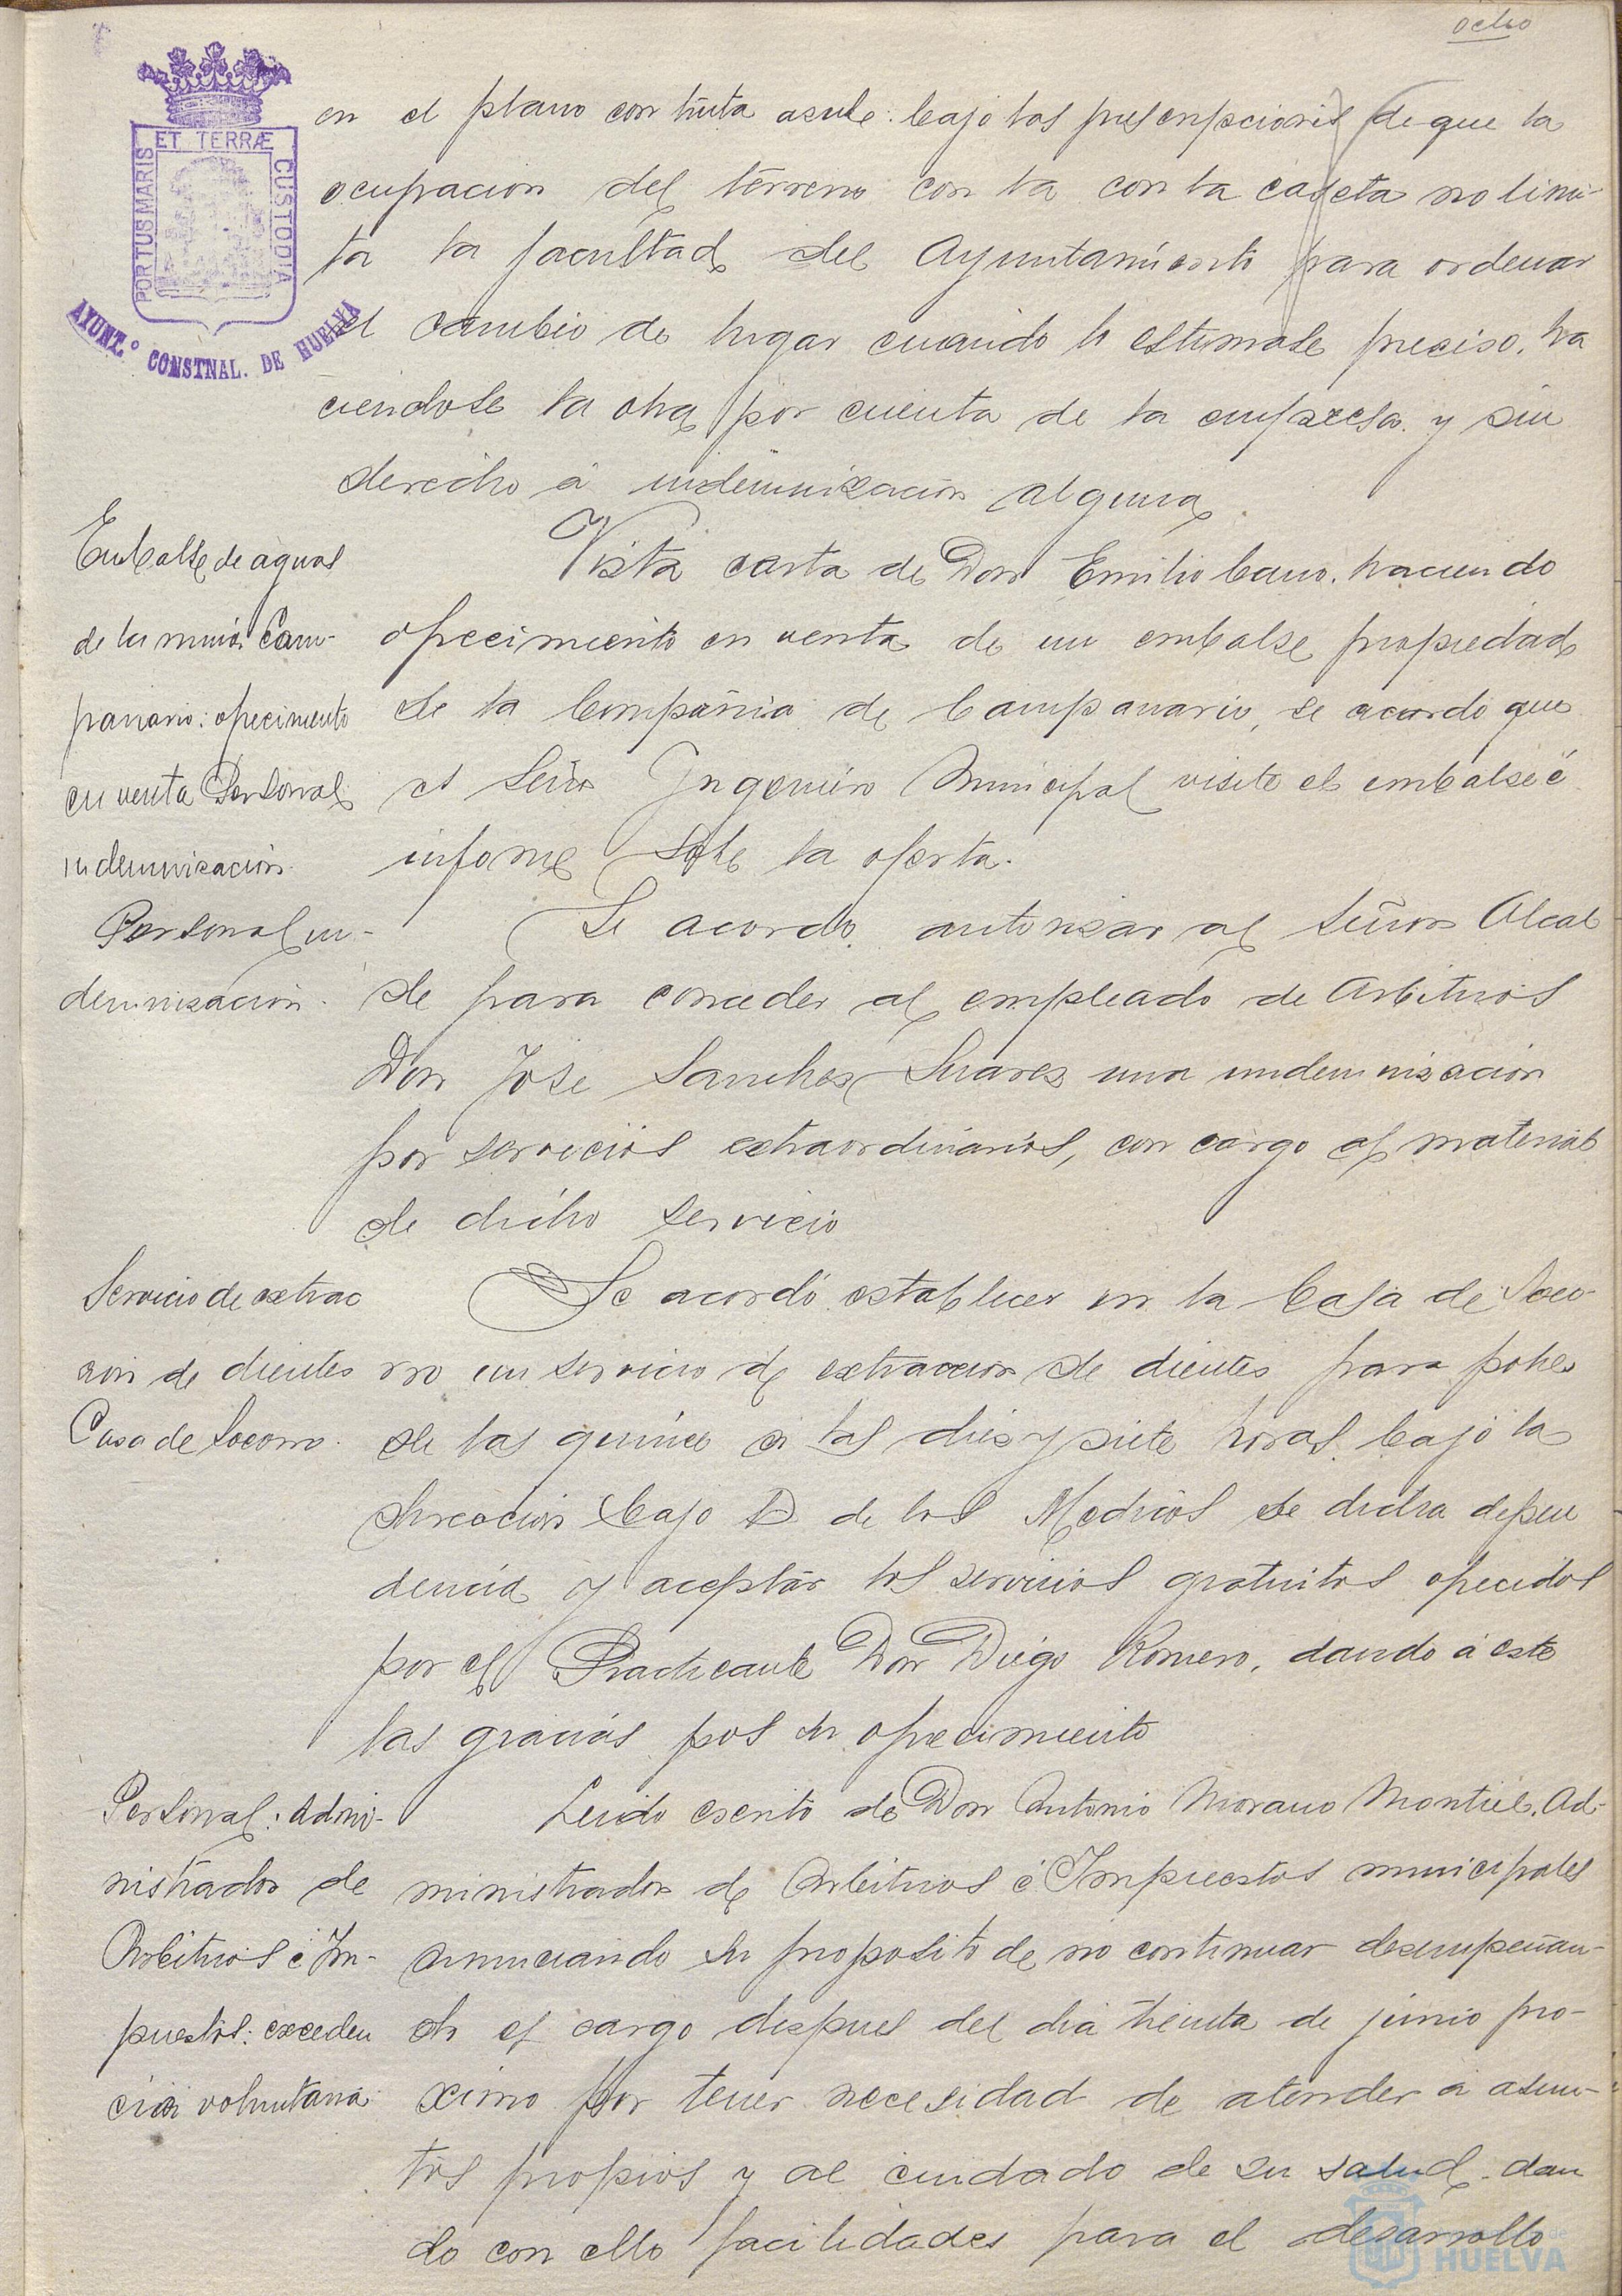 ocho
PORTUS MARIS ET TERRÆ CUSTODIA
AYUNT.º CONSTNAL. DE HUELVA
en el plano con tinta asul: bajo las prescripciones de que la
ocupacion del terreno con la con la caseta no limi-
ta la facultad del Ayuntamiento para ordenar
el cambio de lugar cuando lo estimase preciso, ha
ciendose la obra por cuenta de la empresa y sin
derecho á indemnización alguna.
Embalse de aguas
de la mina Cam-
panario: ofrecimiento
en venta Personal
indemnización.
Vista carta de Don Emilio Cano, haciendo
ofrecimiento en venta de un embalse propiedad
de la Compañia de Campanario, se acordo que
el Señor Ingeniero Municipal visite el embalse é
informe sobre la oferta.
Personal in-
demnisación.
Se acordo autorisar al Señor Alcal
de para conceder al empleado de Arbitrios
Don Jose Sanches Suares una indemnisacion
por servicios extraordinarios, con cargo al material
de dicho servicio
Servicio de extrac
cion de dientes
Casa de Socorro.
Se acordó establecer en la Casa de Soco-
rro un servicio de extraccion de dientes para pobres
de las quince a las dies y siete horas bajo la
direccion bajo D de los Medicos de dicha depen
dencia y aceptar los servicios gratuitos ofrecidos
por el Practicante Don Diego Romero, dando á este
las gracias pos su ofrecimiento
Personal: Admi-
nistrador de
Arbitrios é Im-
puestos: exceden
cia voluntaria.
Leido escrito de Don Antonio Morano Montiel, Ad-
ministrador de Arbitrios é Impuestos municipales
anunciando su proposito de no continuar desempeñan-
do el cargo despues del dia treinta de junio pro-
ximo por tener necesidad de atender a asun-
tos propios y al cuidado de su salud, dan
do con ello facilidades para el desarrollo
HUELVA